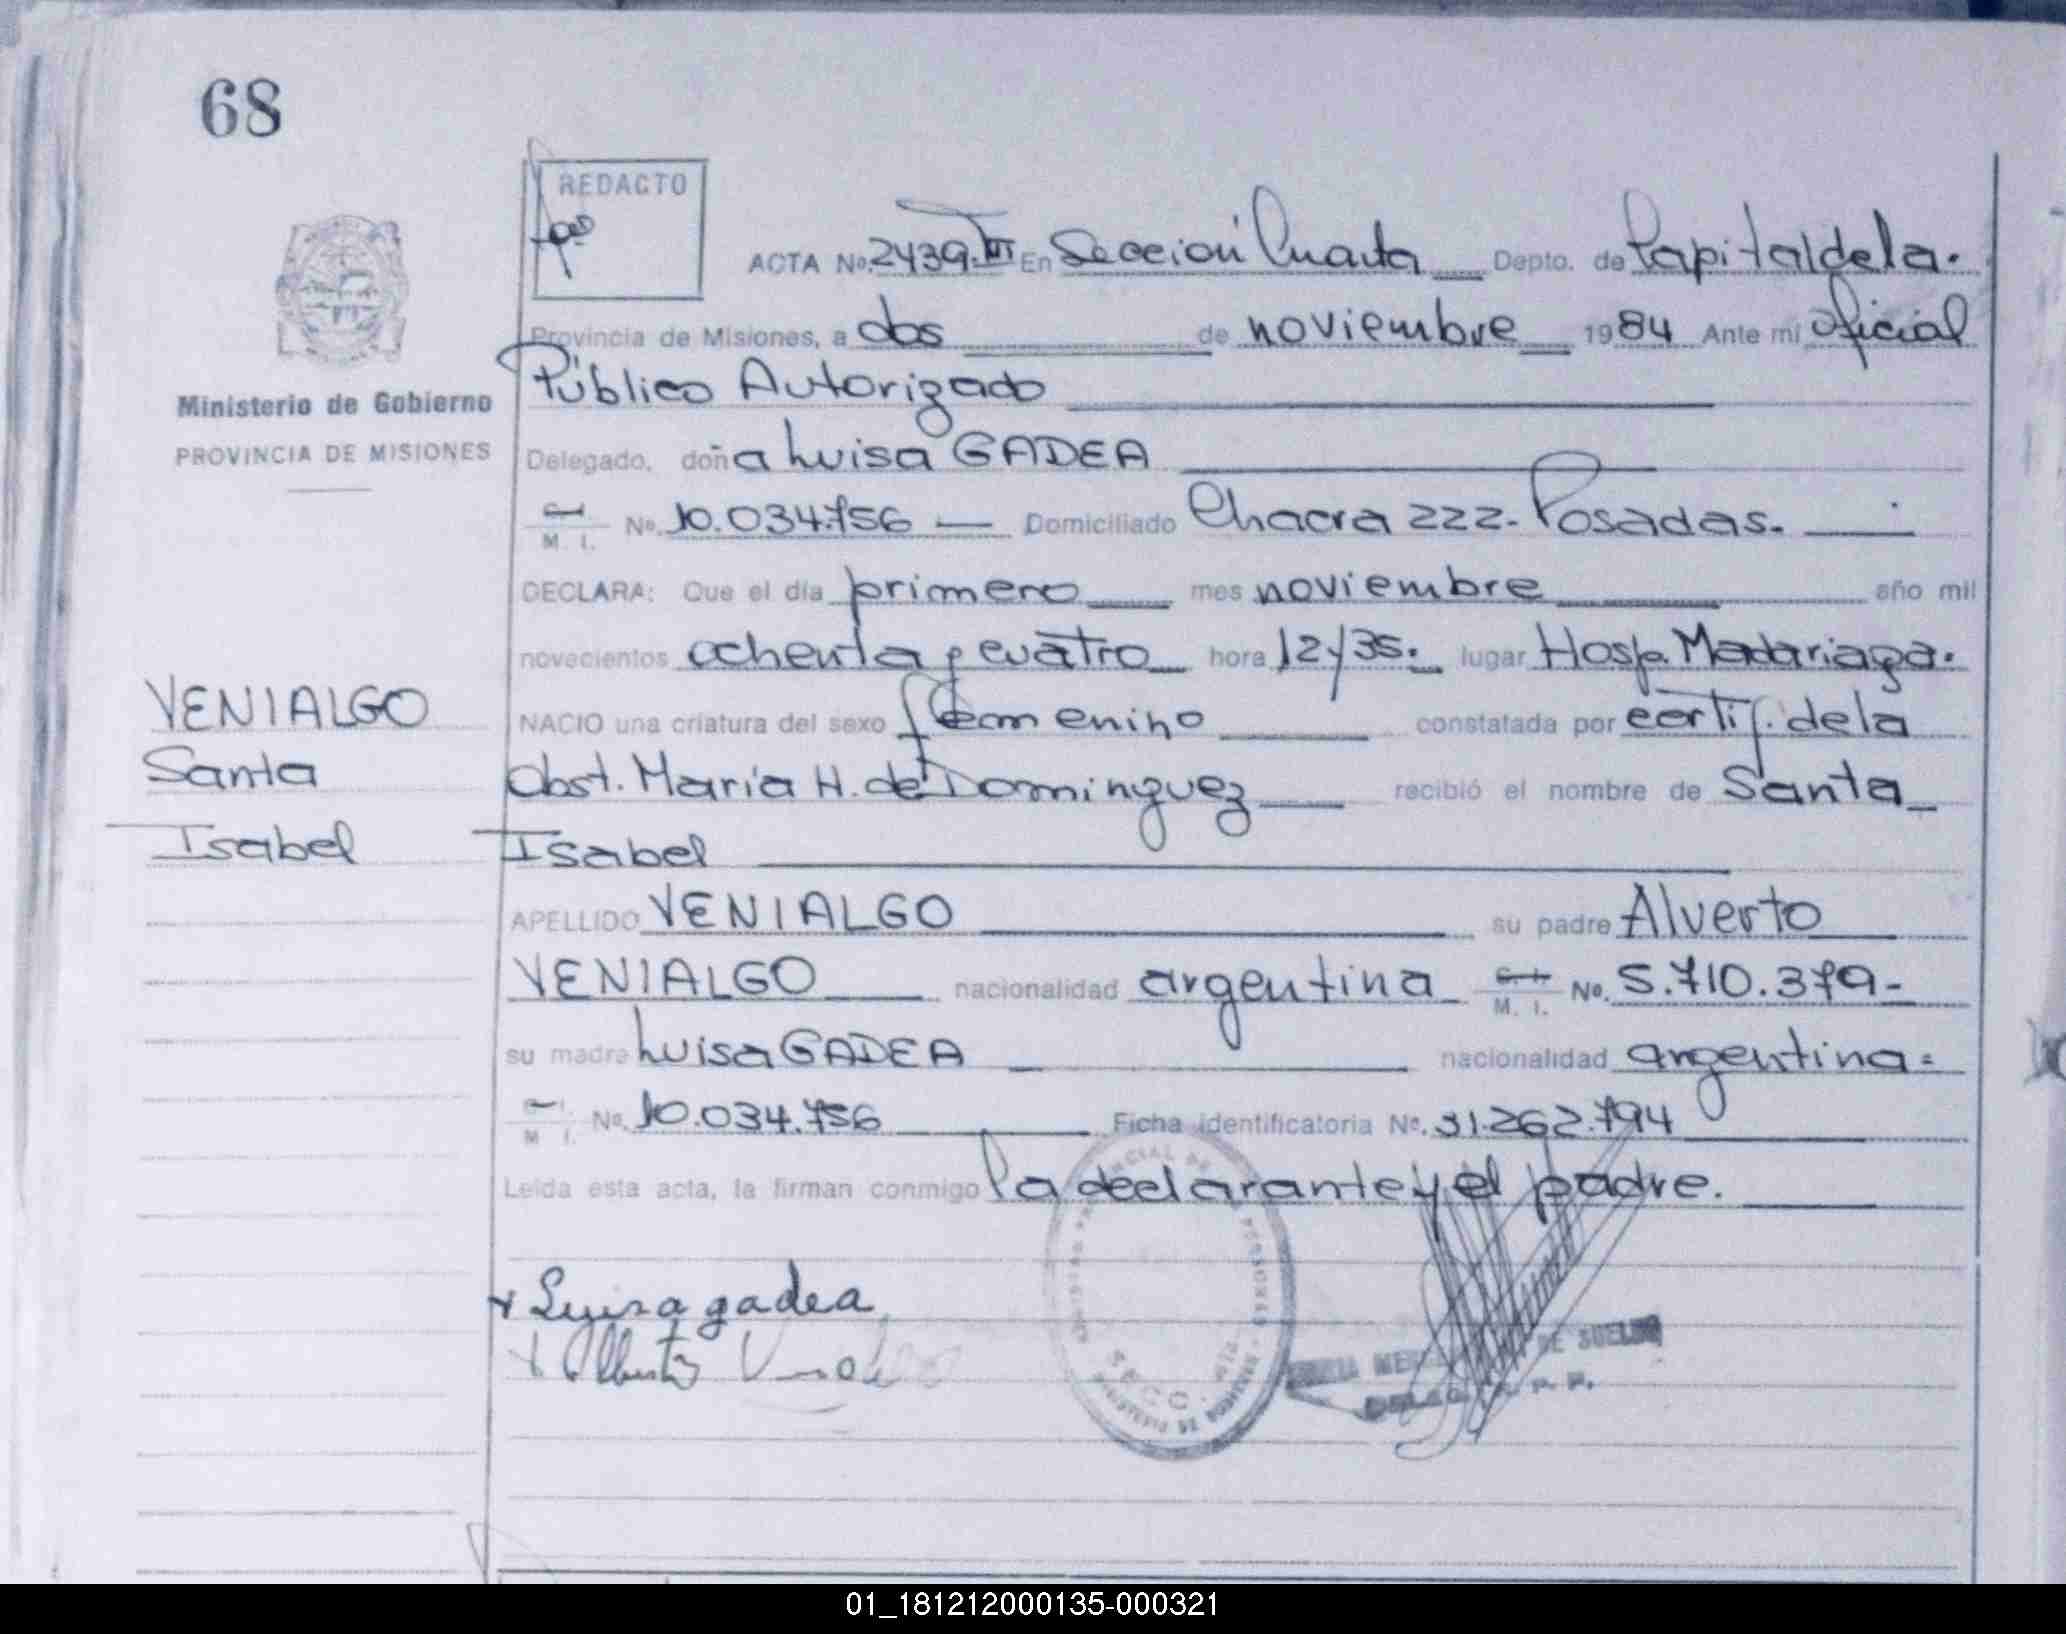 68
REDACTO
ACTA No. 2439.III En Sección Cuarta Depto. de Capital de la.
Provincia de Misiones, a dos de noviembre 1984 Ante mi Oficial
Público Autorizado
Ministerio de Gobierno
PROVINCIA DE MISIONES
Delegado, doña Luisa GADEA
M. I. No. 10.034.756 Domiciliado Chacra 222. Posadas.
DECLARA: Que el día primero mes noviembre año mil
novecientos ochenta y cuatro hora 12y35. lugar Hosp. Madariaga.
VENIALGO
Santa
Isabel
NACIO una criatura del sexo femenino constatada por certif. de la
Obst. María H. de Dominguez recibió el nombre de Santa
Isabel
APELLIDO VENIALGO su padre Alverto
VENIALGO nacionalidad argentina M. I. No. 5.710.379-
su madre Luisa GADEA nacionalidad argentina=
M. I. No. 10.034.756 Ficha identificatoria No. 31.262.794
Leída esta acta, la firman conmigo la declarante y el padre.
Luisa gadea
Alberto
DE SUELDO
01_181212000135-000321